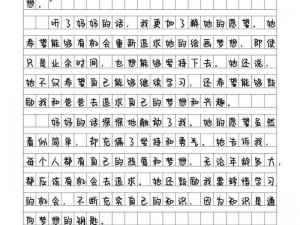 想。
听了妈妈的话，我更加了解她的愿望。她
希望能够有机会重新追求她的绘画梦想，即使
只是业余时间，也能够坚持下去。她还说，
她不仅希望自己能够继续学习，还希望能够鼓
励我和爸爸去追求自己的梦想和兴趣。
妈妈的话深深地触动了我。她的愿望虽然
看似简单，却充满了坚持和勇气。她告诉我，
每个人都有自己的热爱和梦想，无论年龄多大，
都应该有机会去追求。她还鼓励我要珍惜学习
的机会，不断充实自己的知识，因为知识是通
向梦想的钥匙。